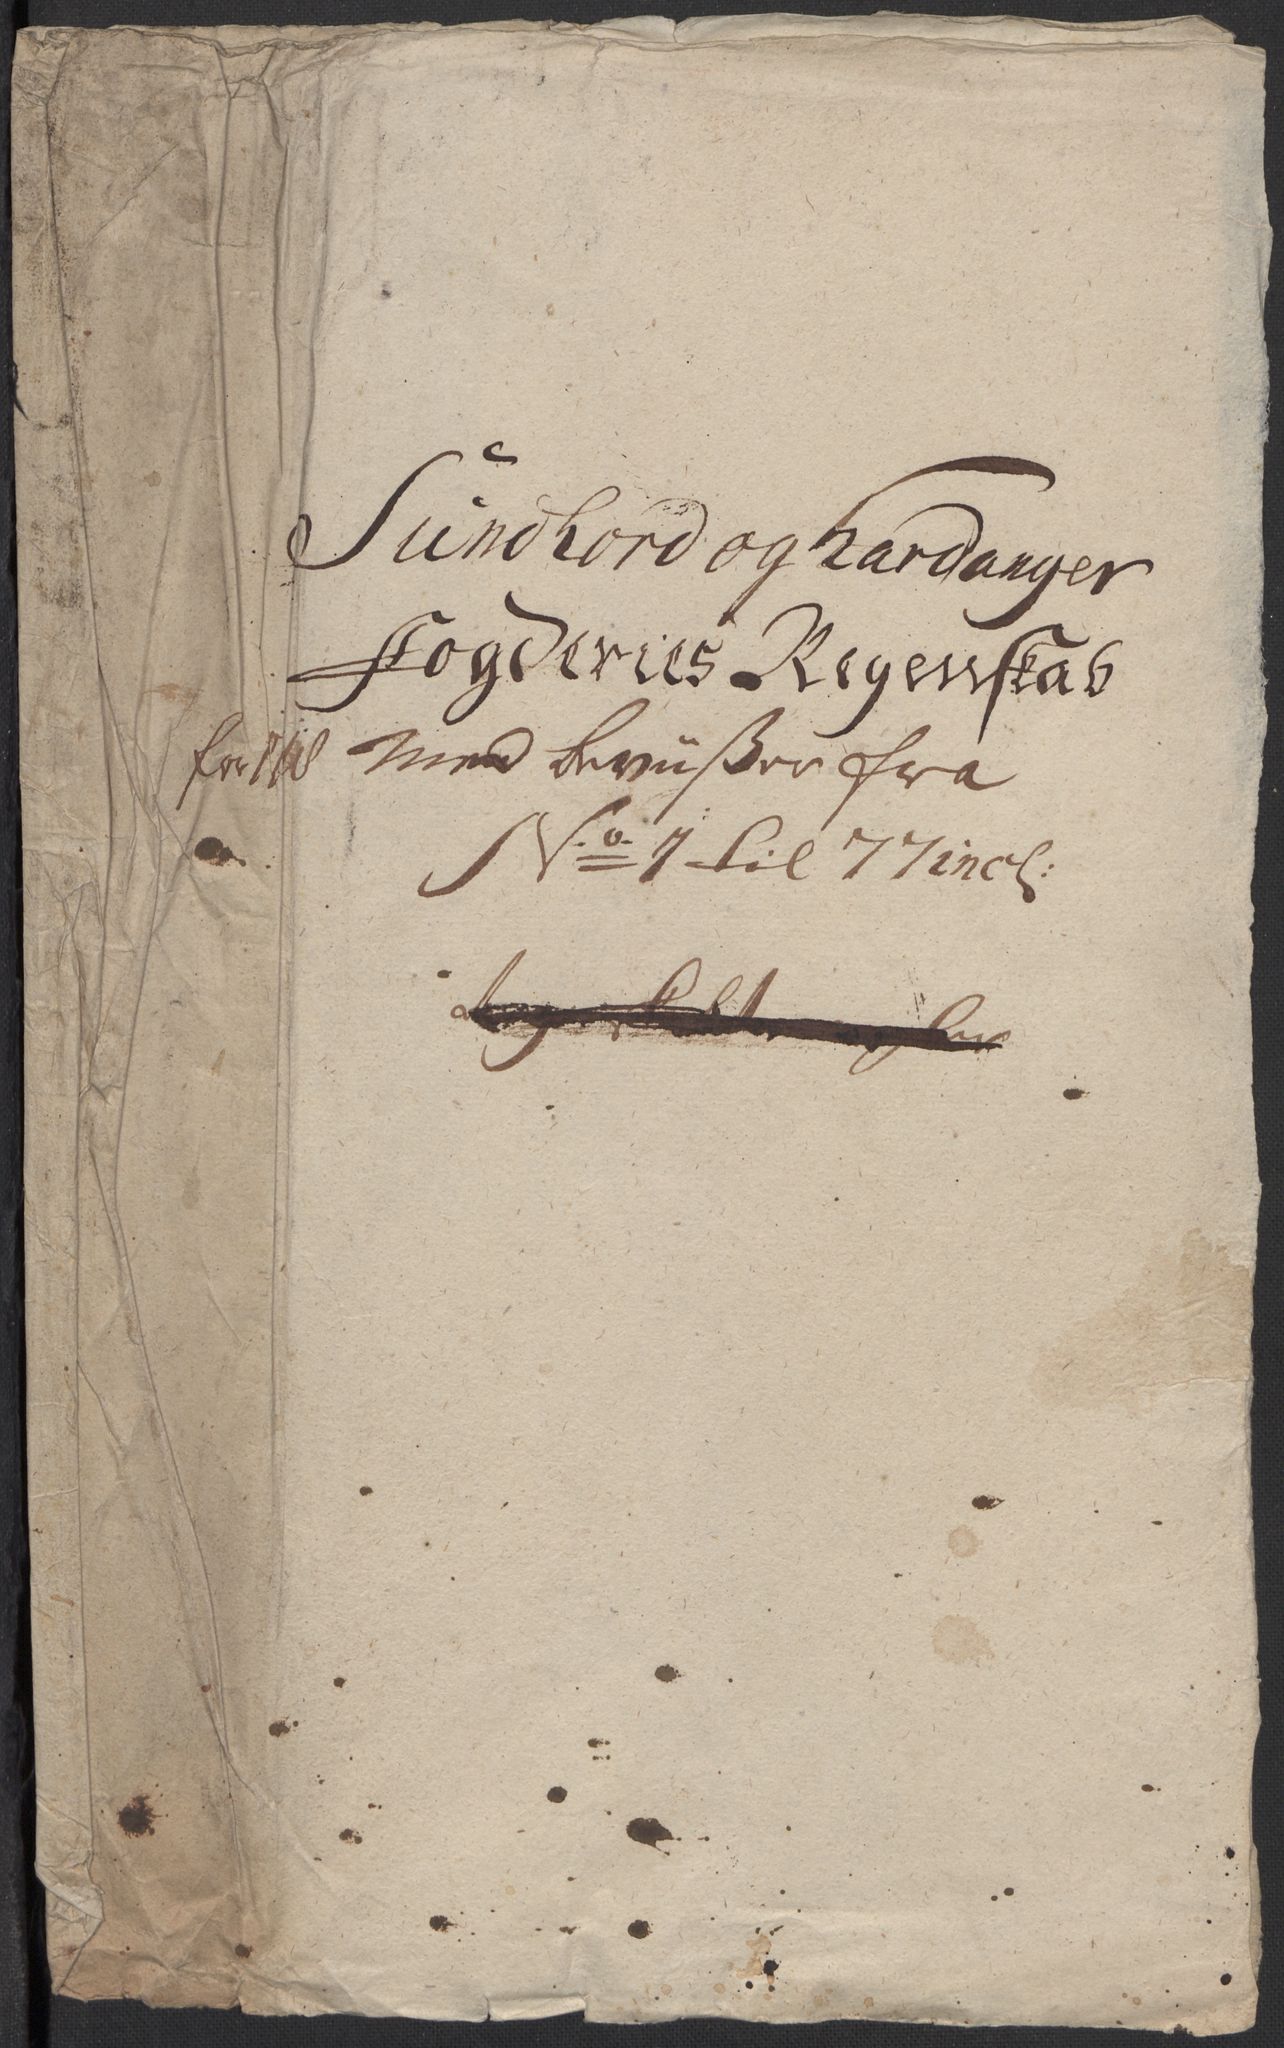 Sŭndhord og hardanger
ffogderies Regenskab
for med bevüßer fra
N.o. 1 til 77 incl: